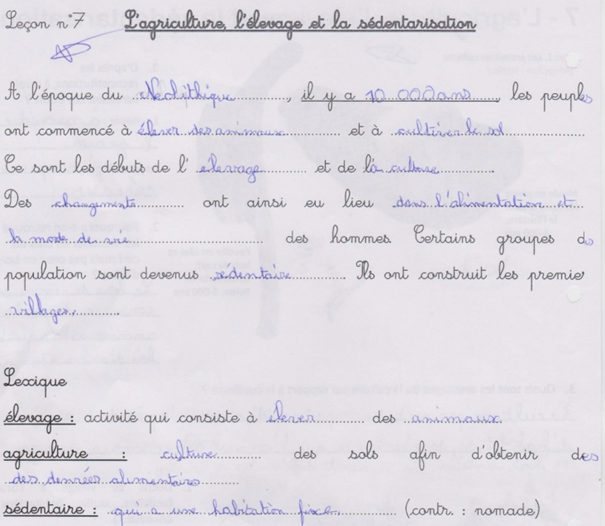 Leçon n°7 L'agriculture, l'élevage et la sédentarisation
A l'époque du Néolithique, il y a 10 000 ans, les peuples
ont commencé à élever des animaux et à cultiver le sol
Ce sont les débuts de l'élevage et de la culture.
Des changements ont ainsi eu lieu dans l'alimentation et
la mode de vie des hommes. Certains groupes de
population sont devenus sédentaire. Ils ont construit les premier
villages.
Lexique
élevage : activité qui consiste à élever des animaux
agriculture : culture des sols afin d'obtenir des
des denrées alimentaire
sédentaire : qui a une habitation fixe (contr. : nomade)